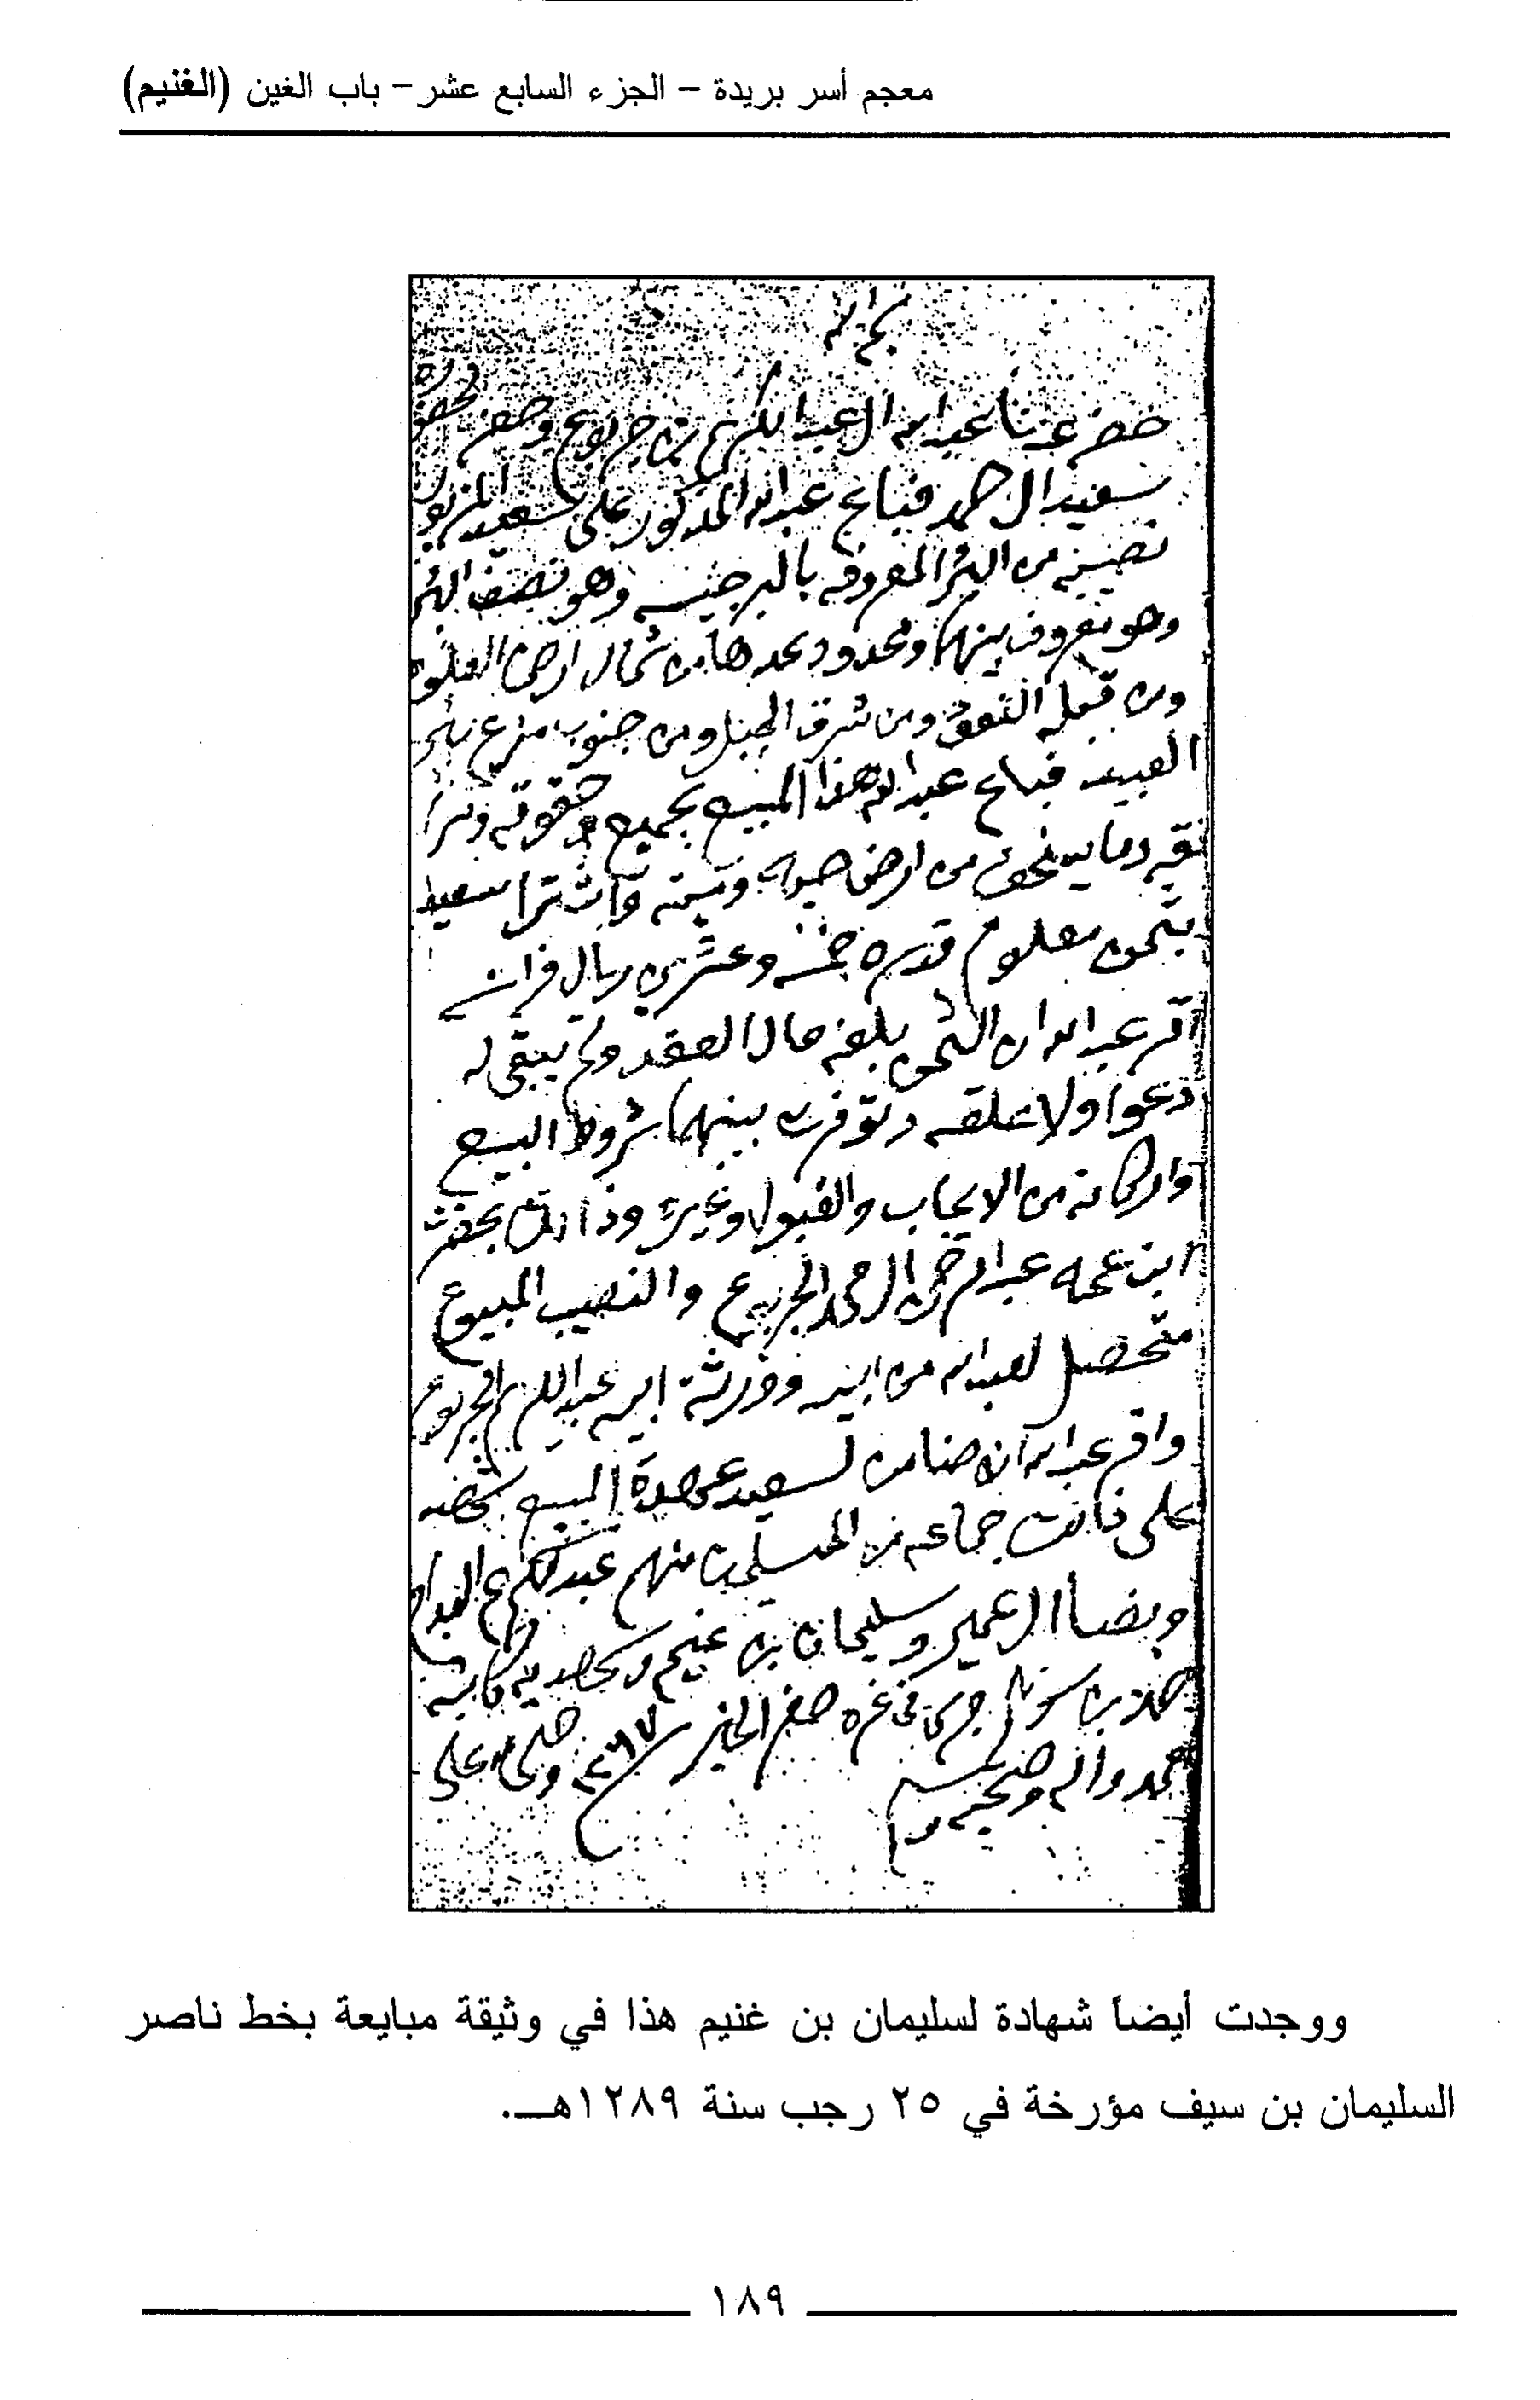 معجم أسر بريدة – الجزء السابع عشر – باب الغين (الغنيم)
حضر عندنا عبدالله ال عبدالكريم بن جربوع وحضر لحضوره
سعيد ال حمد فباع عبدالله المذكور على سعيد المزبور
نصيبه من البئر المعروفه وهو نصف البئر
وهو معروف بينهما ومحدود يحدها من شمال ارض
ومن قبله ومن شرق الجبل ومن جنوب
العبيد فباع عبدالله هذا المبيع بجميع حقوقه
وما يستحق من ارض واشترا سعيد
بثمن معلوم قدره خمسه وعشرين ريال فرانسي
اقر عبدالله ان الثمن بلغه حال العقد ولم يبقى له
دعوا ولا علقه وتوفرت بينهما شروط البيع
واركانه من الايجاب والقبول وغيره وذالك بحضرت
ابن عمه عبدالرحمن ال محمد الجربوع والنصيب المبيوع
متحصل لعبدالله من ابيه وورثة ابيه عبدالكريم الجربوع
واقر عبدالله انه ضامن لسعيد عهدة المبيع
على جماعه من المسلمين منهم عبدالكريم
ال عمير وسليمان بن غنيم وشهد به كاتبه
محمد بن سويلم جرى في غرة صفر الخير ١٢٦٧ وصلى الله على
محمد واله وصحبه وسلم
ووجدت أيضاً شهادة لسليمان بن غنيم هذا في وثيقة مبايعة بخط ناصر
السليمان بن سيف مؤرخة في ٢٥ رجب سنة ١٢٨٩هـ.
١٨٩